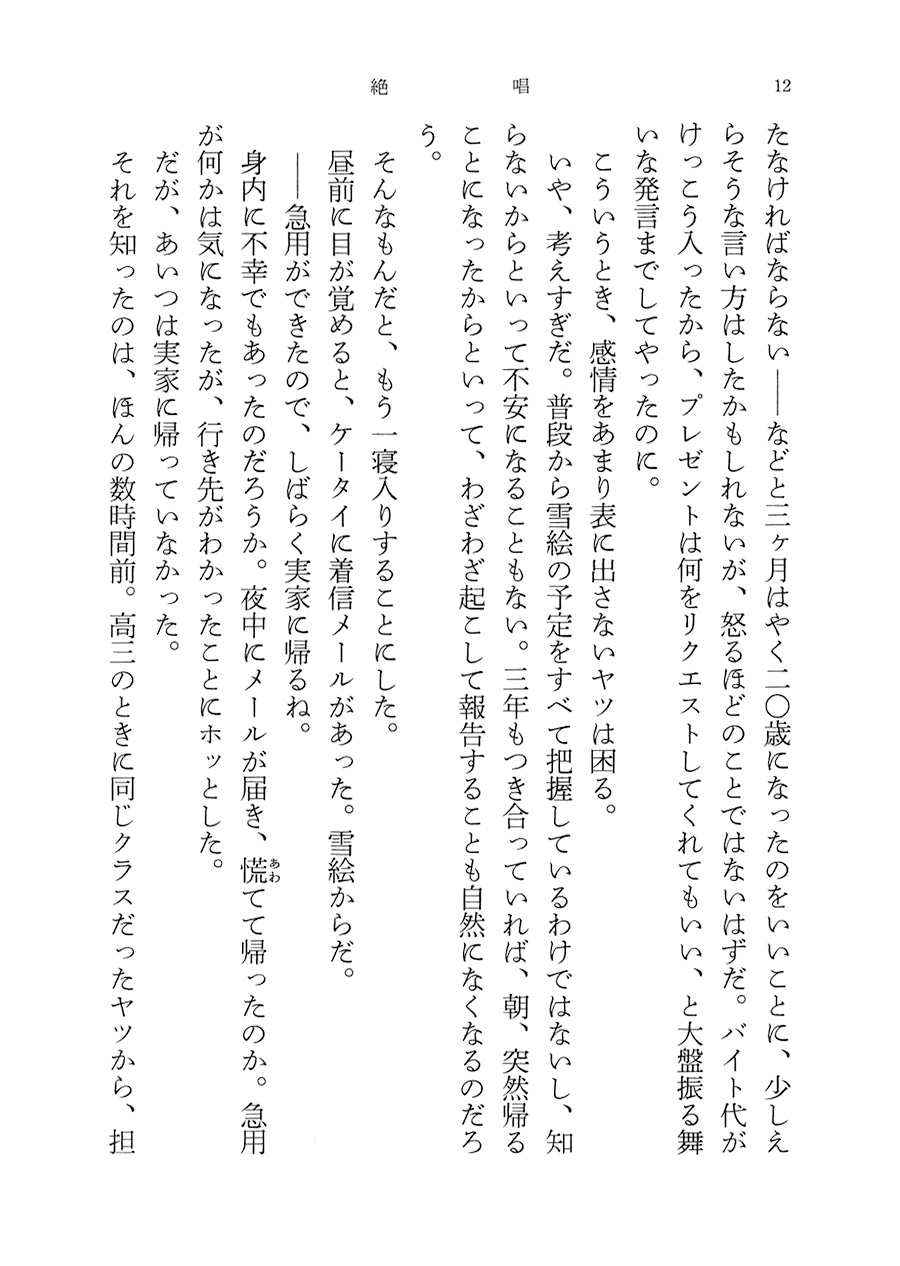 12
絶唱
たなければならない――などと三ヶ月はやく二〇歳になったのをいいことに、少しえ
らそうな言い方はしたかもしれないが、怒るほどのことではないはずだ。バイト代が
けっこう入ったから、プレゼントは何をリクエストしてくれてもいい、と大盤振る舞
いな発言までしてやったのに。
こういうとき、感情をあまり表に出さないヤツは困る。
いや、考えすぎだ。普段から雪絵の予定をすべて把握しているわけではないし、知
らないからといって不安になることもない。三年もつき合っていれば、朝、突然帰る
ことになったからといって、わざわざ起こして報告することも自然になくなるのだろ
う。
そんなもんだと、もう一寝入りすることにした。
昼前に目が覚めると、ケータイに着信メールがあった。雪絵からだ。
――急用ができたので、しばらく実家に帰るね。
身内に不幸でもあったのだろうか。夜中にメールが届き、慌あわてて帰ったのか。急用
が何かは気になったが、行き先がわかったことにホッとした。
だが、あいつは実家に帰っていなかった。
それを知ったのは、ほんの数時間前。高三のときに同じクラスだったヤツから、担